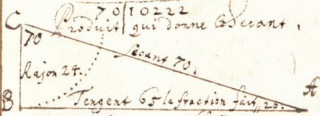 70|10222
Produit qui donne le secant.
C
70
secant 70.
Rajon 24.
A
B
Tengent 65 la fraction fait 20.